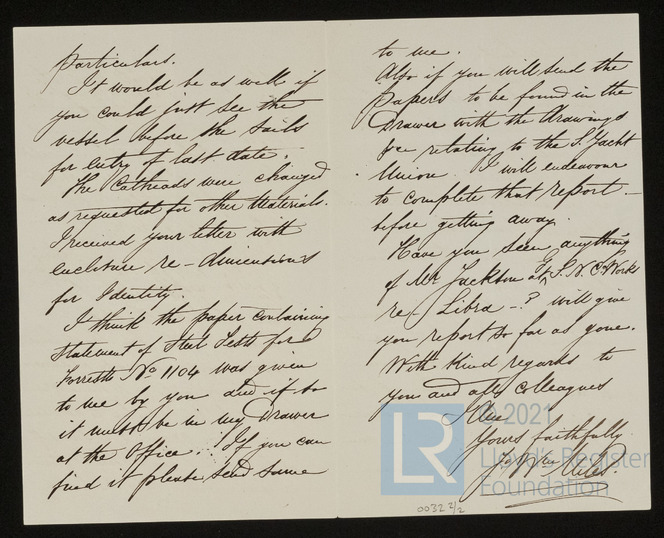 particulars.
It would be as well if
you could just see the
vessel before she sails
for entry of last date.
The Catheads were changed
as requested for other Materials.
I received your letter with
enclosure re - dimensions
for Identity.
I think the paper containing
Statement of Steel Tests for
Forrestt No 1104 was given
to me by you and if so
it must be in my Drawer
at the Office. If you can
find it please send same
to me.
Also if you will send the
papers to be found in the
Drawer with the drawings
&c relating to the S. Yacht
Union. I will endeavour
to complete that report -
before getting away.
Have you seen anything
of Mr Jackson at G.S.N.Co Works
re - Libra - ? will give
you report so far as gone.
With kind regards to
you and colleagues
I am
Yours faithfully
© 2021
LR
Lloyd's Register
Foundation
0032 2/2